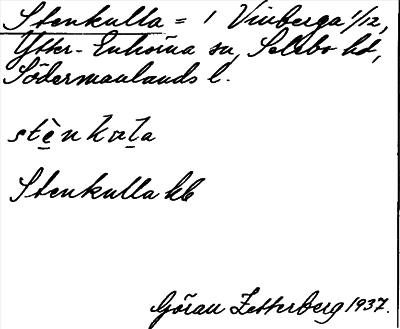 Stenkulla = 1 Vinberga 1/12,
Ytter-Enhörna sn, Selebo hd,
Södermanlands l.
Stenkulla hb
Göran Zetterberg 1937.